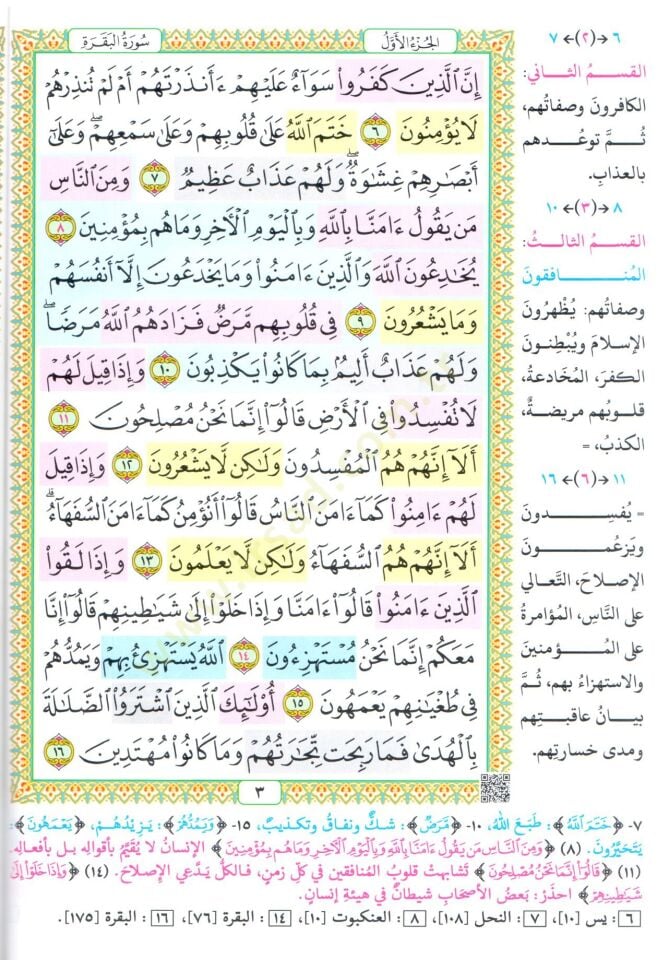 الجُزْءُ الأَوَّلُ
سُورَةُ البَقَرَةِ
إِنَّ ٱلَّذِينَ كَفَرُوا۟ سَوَآءٌ عَلَيْهِمْ ءَأَنذَرْتَهُمْ أَمْ لَمْ تُنذِرْهُمْ
لَا يُؤْمِنُونَ ٦ خَتَمَ ٱللَّهُ عَلَىٰ قُلُوبِهِمْ وَعَلَىٰ سَمْعِهِمْ ۖ وَعَلَىٰٓ
أَبْصَـٰرِهِمْ غِشَـٰوَةٌ ۖ وَلَهُمْ عَذَابٌ عَظِيمٌ ٧ وَمِنَ ٱلنَّاسِ
مَن يَقُولُ ءَامَنَّا بِٱللَّهِ وَبِٱلْيَوْمِ ٱلْـَٔاخِرِ وَمَا هُم بِمُؤْمِنِينَ ٨
يُخَـٰدِعُونَ ٱللَّهَ وَٱلَّذِينَ ءَامَنُوا۟ وَمَا يَخْدَعُونَ إِلَّآ أَنفُسَهُمْ
وَمَا يَشْعُرُونَ ٩ فِى قُلُوبِهِم مَّرَضٌ فَزَادَهُمُ ٱللَّهُ مَرَضًا ۖ
وَلَهُمْ عَذَابٌ أَلِيمٌۢ بِمَا كَانُوا۟ يَكْذِبُونَ ١٠ وَإِذَا قِيلَ لَهُمْ
لَا تُفْسِدُوا۟ فِى ٱلْأَرْضِ قَالُوٓا۟ إِنَّمَا نَحْنُ مُصْلِحُونَ ١١
أَلَآ إِنَّهُمْ هُمُ ٱلْمُفْسِدُونَ وَلَـٰكِن لَّا يَشْعُرُونَ ١٢ وَإِذَا قِيلَ
لَهُمْ ءَامِنُوا۟ كَمَآ ءَامَنَ ٱلنَّاسُ قَالُوٓا۟ أَنُؤْمِنُ كَمَآ ءَامَنَ ٱلسُّفَهَآءُ ۗ
أَلَآ إِنَّهُمْ هُمُ ٱلسُّفَهَآءُ وَلَـٰكِن لَّا يَعْلَمُونَ ١٣ وَإِذَا لَقُوا۟
ٱلَّذِينَ ءَامَنُوا۟ قَالُوٓا۟ ءَامَنَّا وَإِذَا خَلَوْا۟ إِلَىٰ شَيَـٰطِينِهِمْ قَالُوٓا۟ إِنَّا
مَعَكُمْ إِنَّمَا نَحْنُ مُسْتَهْزِءُونَ ١٤ ٱللَّهُ يَسْتَهْزِئُ بِهِمْ وَيَمُدُّهُمْ
فِى طُغْيَـٰنِهِمْ يَعْمَهُونَ ١٥ أُو۟لَـٰٓئِكَ ٱلَّذِينَ ٱشْتَرَوُا۟ ٱلضَّلَـٰلَةَ
بِٱلْهُدَىٰ فَمَا رَبِحَت تِّجَـٰرَتُهُمْ وَمَا كَانُوا۟ مُهْتَدِينَ ١٦
٣
٦ ← (٢) ← ٧
القسمُ الثاني:
الكافرونَ وصفاتُهم،
ثُمَّ توعُدهم
بالعذابِ.
٨ ← (٣) ← ١٠
القسمُ الثالثُ:
المُنافقونَ
وصفاتُهم: يُظْهِرُونَ
الإسلامَ ويُبْطِنونَ
الكفرَ، المُخَادعةُ،
قلوبُهم مريضةٌ،
الكذبُ، =
١١ ← (٦) ← ١٦
= يُفسِدونَ
ويَزعُمونَ
الإصلاحَ، التَّعالي
على النَّاسِ، المُؤامرةُ
على المُؤمنينَ
والاستهزاءُ بهم، ثُمَّ
بيانُ عاقبتِهم
ومدى خسارتِهم.
٧- ﴿خَتَمَ ٱللَّهُ﴾: طَبَعَ اللهُ، ١٠- ﴿مَّرَضٌ﴾: شكٌّ ونفاقٌ وتكذيبٌ، ١٥- ﴿وَيَمُدُّهُمْ﴾: يَزيدُهُم، ﴿يَعْمَهُونَ﴾:
يَتَحَيَّرُونَ. (٨) ﴿وَمِنَ ٱلنَّاسِ مَن يَقُولُ ءَامَنَّا بِٱللَّهِ وَبِٱلْيَوْمِ ٱلْـَٔاخِرِ وَمَا هُم بِمُؤْمِنِينَ﴾ الإنسانُ لا يُقيَّمُ بأقوالِه بل بأفعالِه.
(١١) ﴿قَالُوٓا۟ إِنَّمَا نَحْنُ مُصْلِحُونَ﴾ تَشابَهتْ قلوبُ المُنافقينَ في كلِّ زمنٍ، فالكلُّ يدَّعي الإصلاحَ. (١٤) ﴿وَإِذَا خَلَوْا۟ إِلَىٰ
شَيَـٰطِينِهِمْ﴾ احذَرْ: بَعضُ الأصْحابِ شَيطانٌ في هيئةِ إنسانٍ.
٦: يس [١٠]، ٧: النحل [١٠٨]، ٨: العنكبوت [١٠]، ١٤: البقرة [٧٦]، ١٦: البقرة [١٧٥].